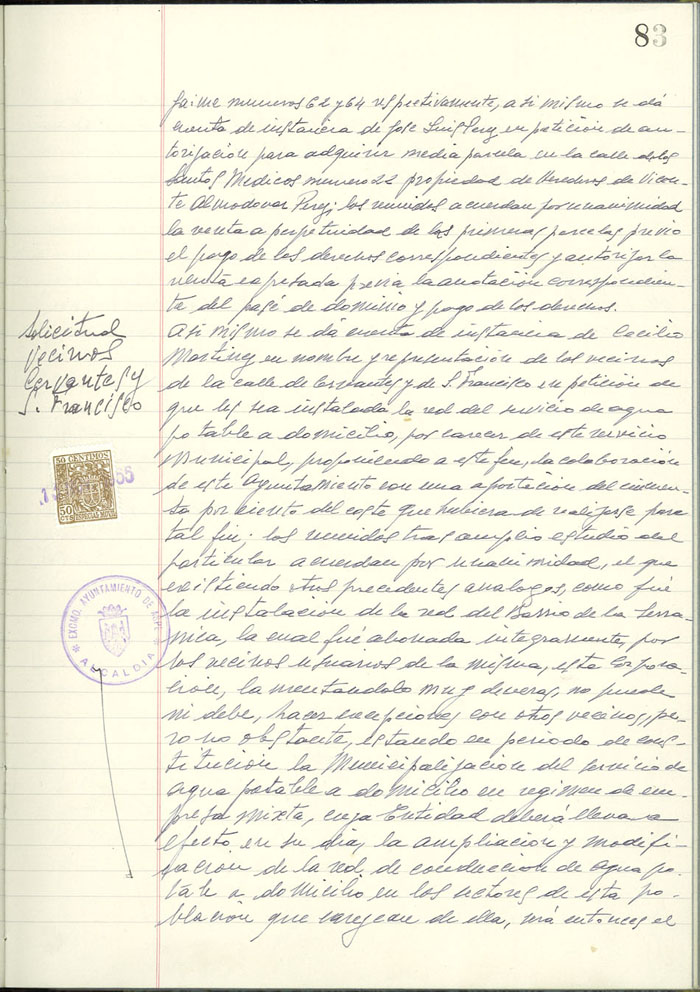 83
Jaime numeros 62 y 64 respectivamente, asi mismo se dá
cuenta de instancia de Jose Luis Perez en peticion de au-
torización para adquirir media parcela en la calle de los
Santos Medicos numero 22 propiedad de Herederos de Vicen-
te Almodovar Perez; los reunidos acuerdan por unanimidad
la venta a perpetuidad de las primeras parcelas previo
el pago de los derechos correspondientes y autorizar la
venta expresada previa la anotación correspondien-
te del pase de dominio y pago de los derechos.
Solicitud
Vecinos
Cervantes y
S. Francisco
Asi mismo se dá cuenta de instancia de Cecilio
Martinez en nombre y representación de los vecinos
de la calle de Cervantes y de S. Francisco en petición de
que les sea instalada la red del servicio de agua
potable a domicilio, por carecer de este servicio
Municipal, proponiendo a este fin, la colaboración
de este Ayuntamiento con una aportación del cincuen-
ta por ciento del coste que hubiera de realizarse para
tal fin; los reunidos tras amplio estudio del
particular acuerdan por unanimidad, el que
existiendo otros precedentes analogos, como fué
la instalación de la red del Barrio de la
la cual fué abonada integramente, por
los vecinos usuarios de la misma, esta Corpora-
ción, lamentandolo muy deveras, no puede
ni debe, hacer excepciones con otros vecinos, pe-
ro no obstante, estando en periodo de cons-
titución la Municipalización del servicio de
agua potable a domicilio en regimen de em-
presa mixta, cuya Entidad deberá llevar a
efecto, en su dia, la ampliación y modifi-
cación de la red de conducción de agua po-
table a domicilio en los sectores de esta po-
blación que carezcan de ella, será entonces el
50 CENTIMOS
50
CTS
ESPECIAL MOVIL
EXCMO. AYUNTAMIENTO DE
ALCALDIA